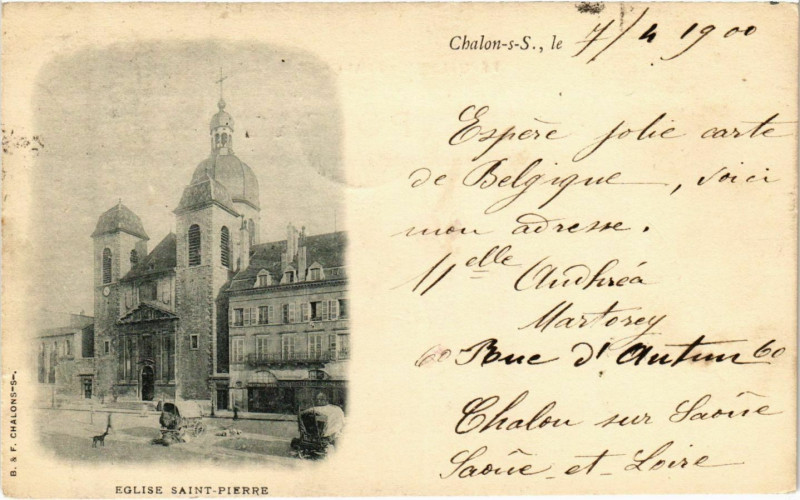 Chalon-s-S., le 7/4 1900
Espère jolie carte
de Belgique, voici
mon adresse.
Melle Andhréa
Martorey
60 Rue d'Autun 60
Chalon sur Saône
Saône-et-Loire
B. & F. CHALONS-S-.
EGLISE SAINT-PIERRE